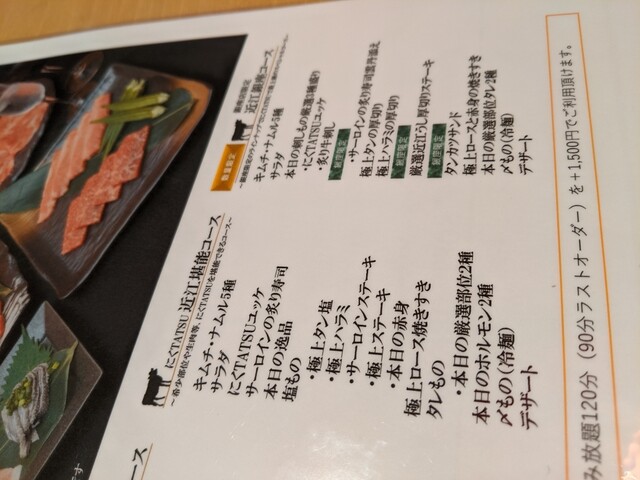 数量限定
銀座店限定
近江銀座コース
キムチ・ナムル5種
サラダ
本日の刺しもの厳選3種盛り
・にくTATSUユッケ
・炙り牛刺し
・サーロインの炙り寿司雲丹添え
極上タンの厚切り
極上ハラミの厚切り
厳選近江うし厚切りステーキ
タンカツサンド
極上ロースと赤身の焼きすき
本日の厳選部位タレ2種
〆もの(冷麺)
デザート
にくTATSU 近江堪能コース
～希少部位や生肉等、にくTATSUを堪能できるコース～
キムチ・ナムル5種
サラダ
にくTATSUユッケ
サーロインの炙り寿司
本日の逸品
塩もの
・極上タン塩
・極上ハラミ
・サーロインステーキ
・極上ステーキ
・本日の赤身
極上ロース焼きすき
タレもの
・本日の厳選部位2種
本日のホルモン2種
〆もの(冷麺)
デザート
コース
み放題120分（90分ラストオーダー）を＋1,500円でご利用頂けます。